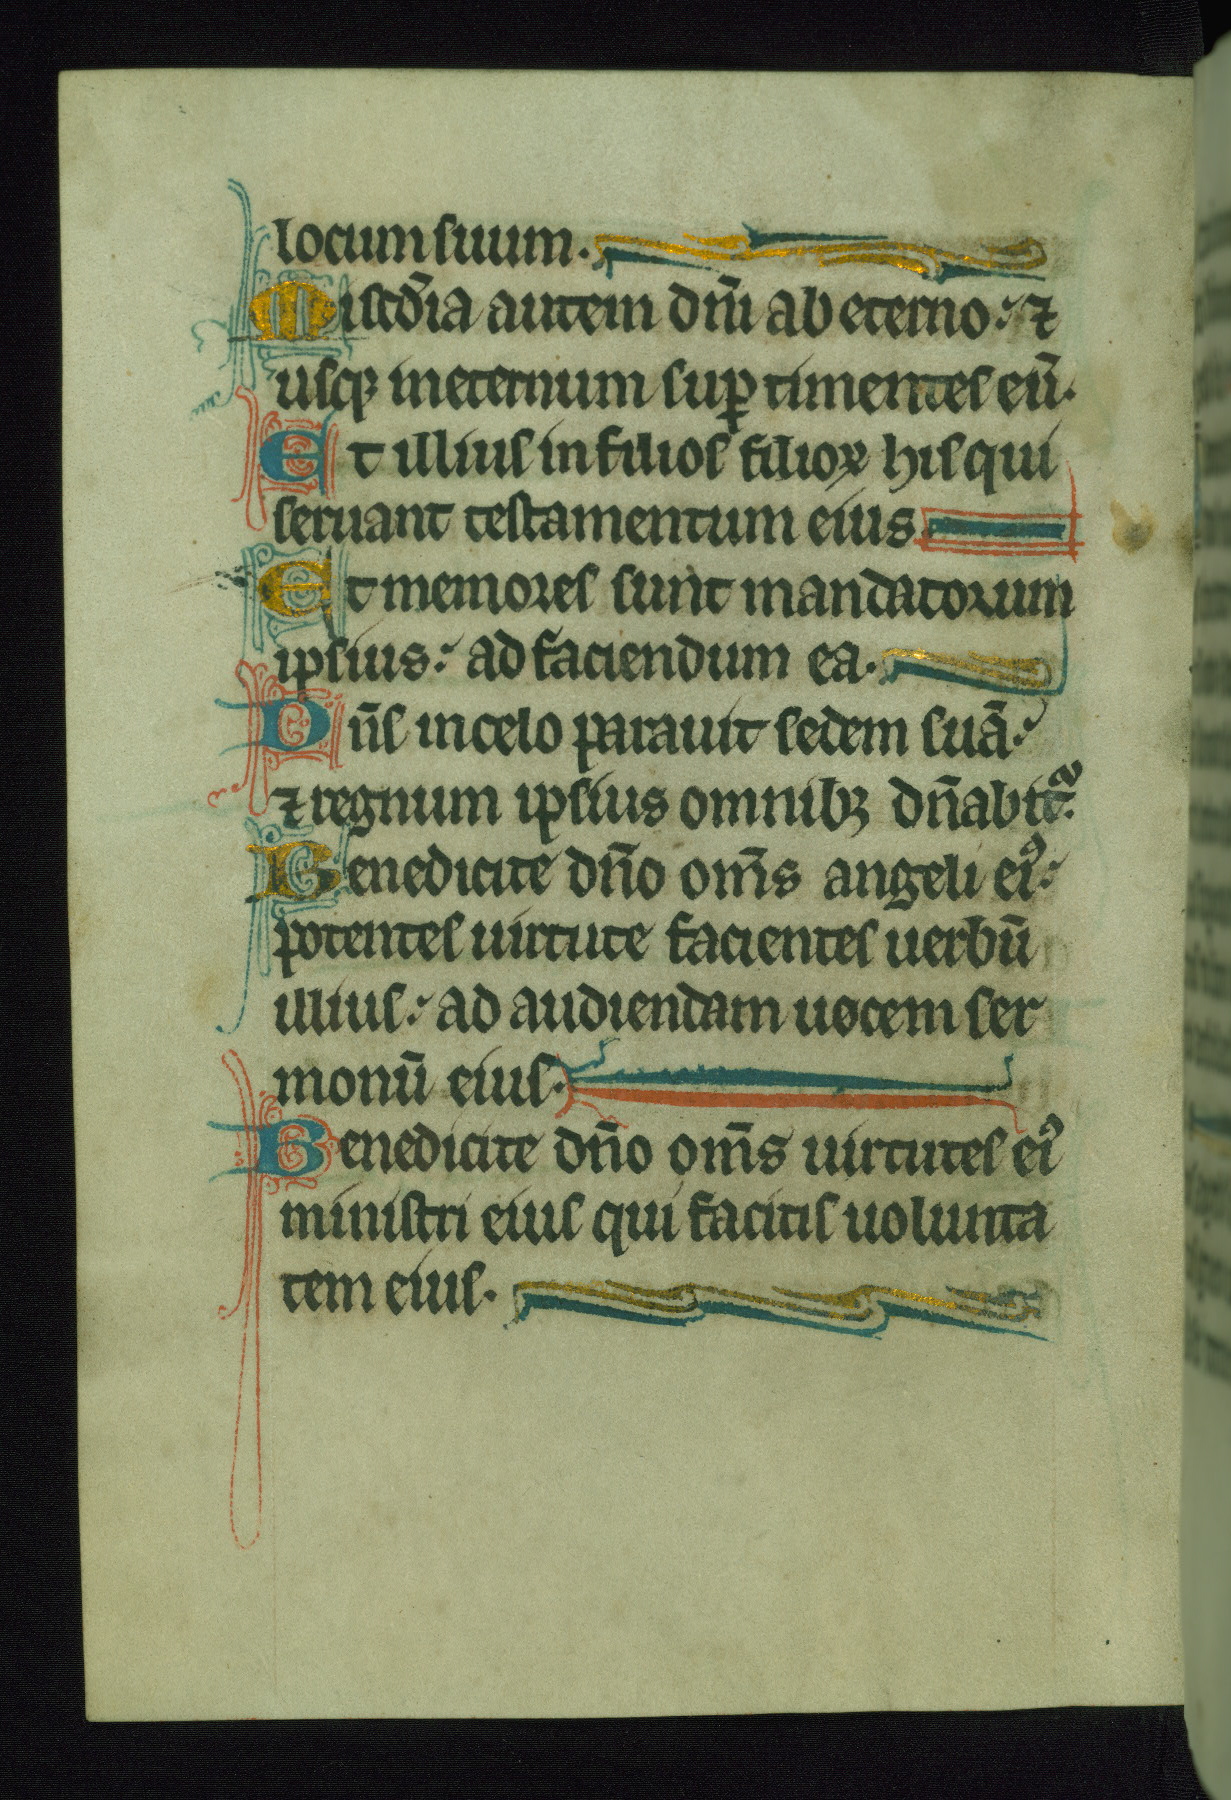 locum suum.
Misc̄dia autem dn̄i ab eterno: ⁊
usqꝫ in eternum suꝑ timentes eū.
Et illius in filios filioꝝ his qui
seruant testamentum eius.
Et memores sunt mandatorum
ipsius: ad faciendum ea.
Dn̄s in celo parauit sedem suā:
⁊ regnum ipsius omnibꝫ dn̄abit᷑.
Benedicite dn̄o om̄s angeli eiꝰ:
potentes uirtute facientes uerbū
illius: ad audiendam uocem ser
monū eius.
Benedicite dn̄o om̄s uirtutes eiꝰ
ministri eius qui facitis uolunta
tem eius.